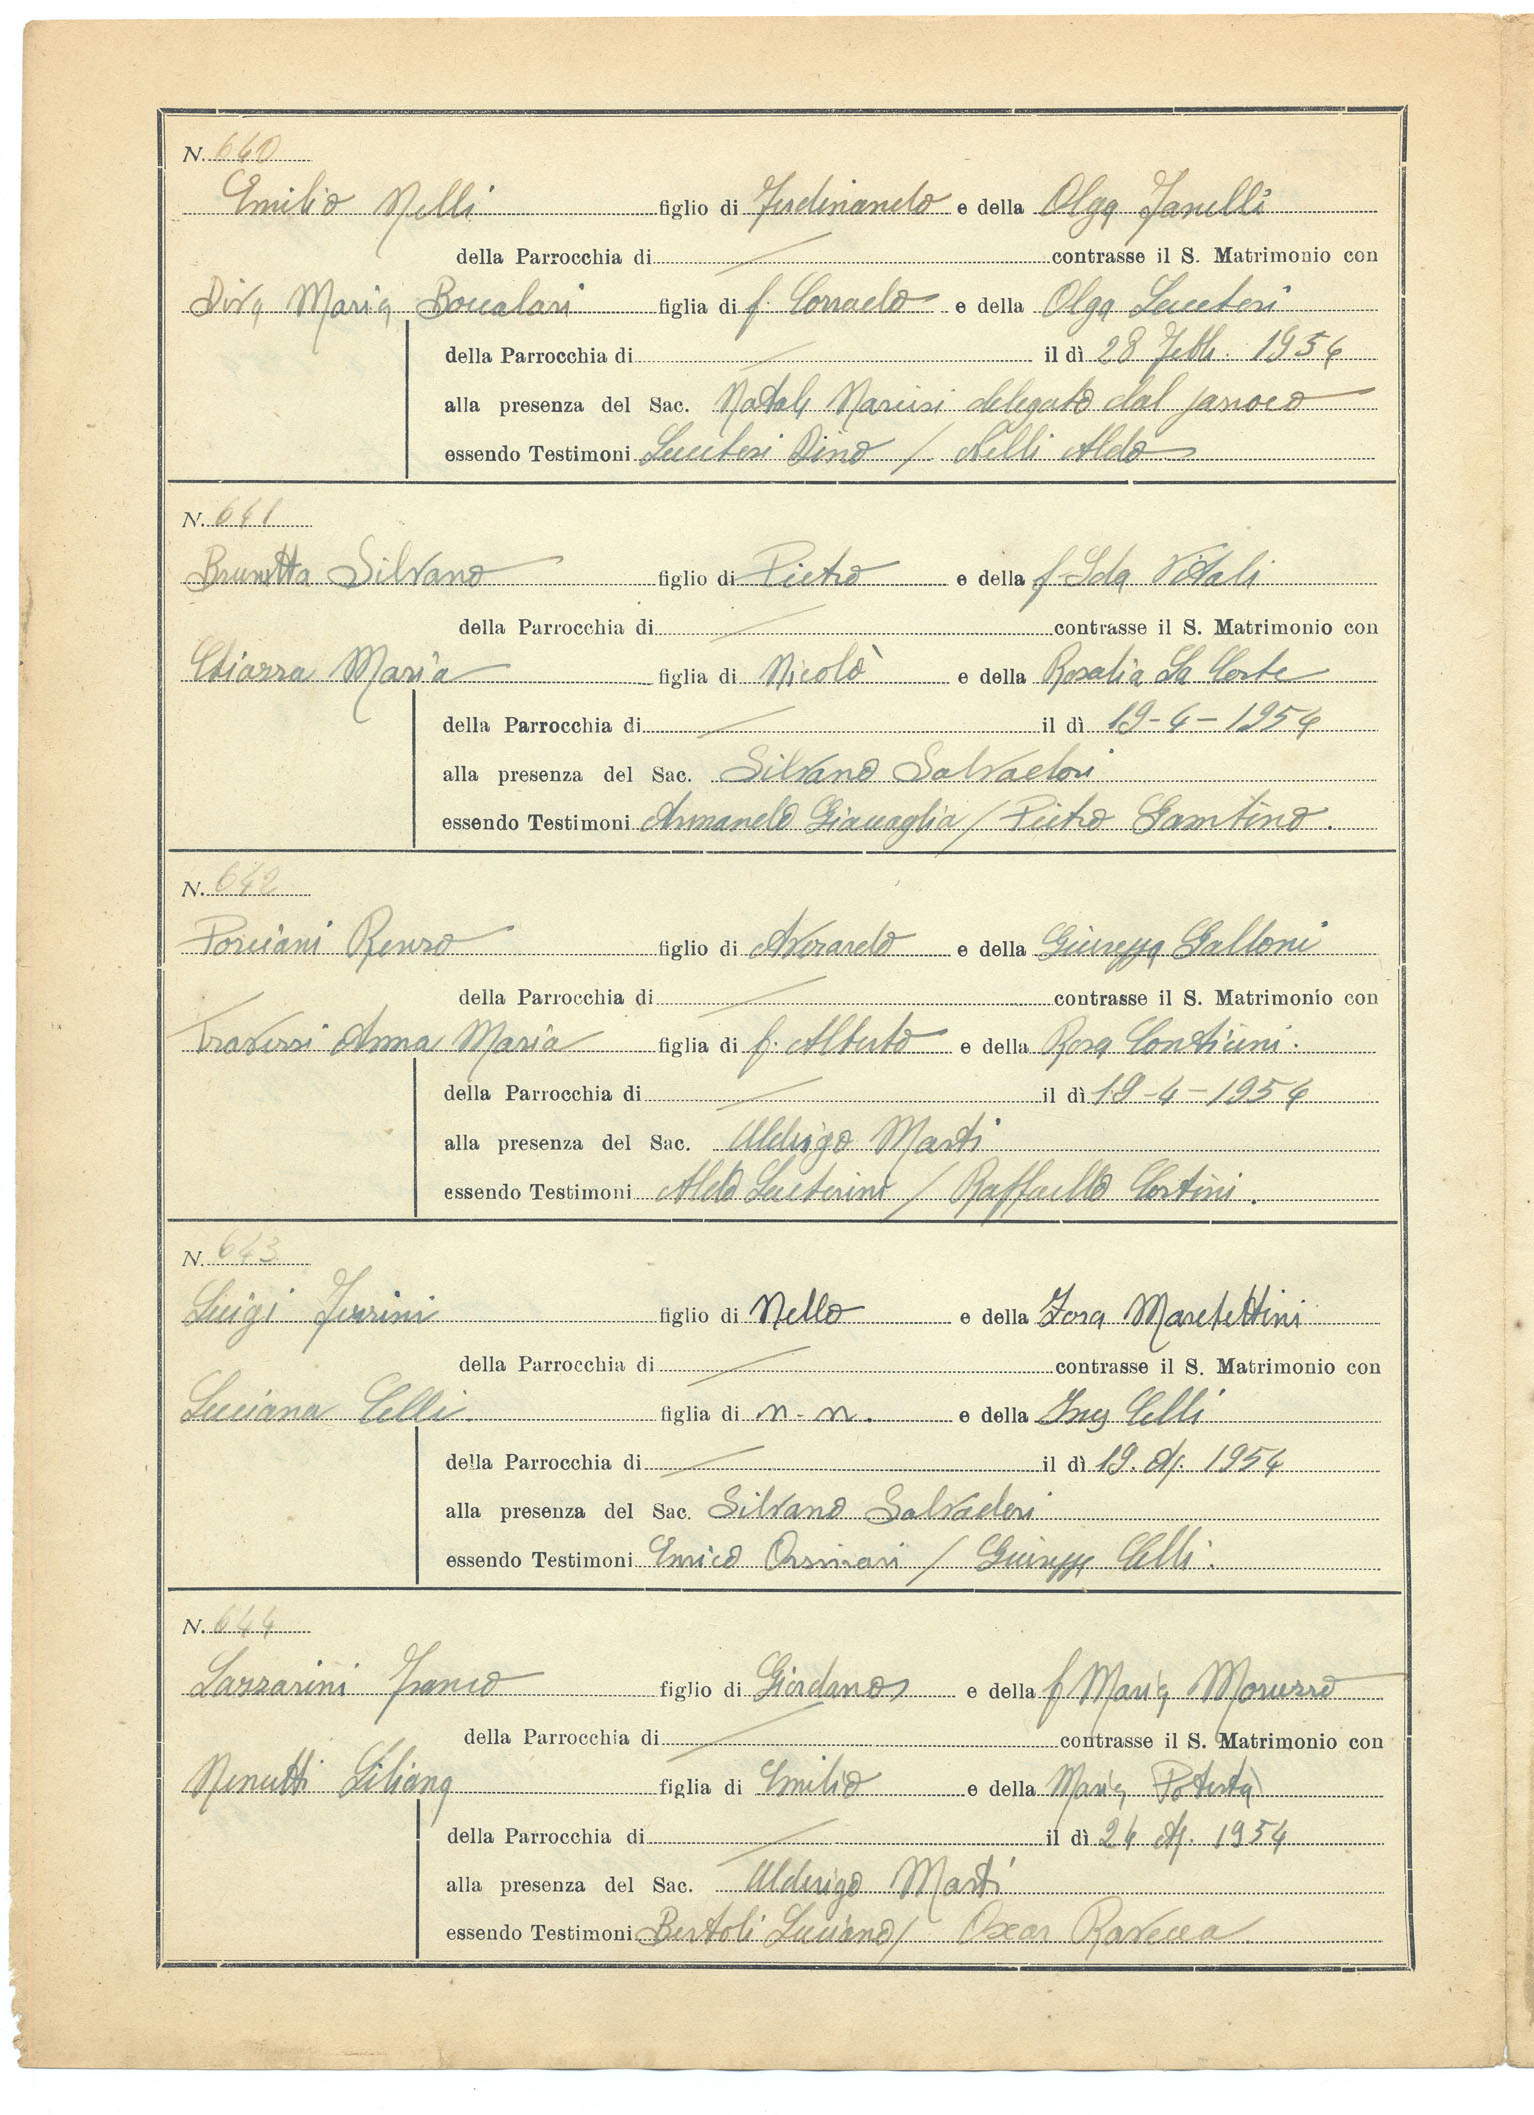 N. 640
Emilio Nelli figlio di Ferdinando e della Olga Fanelli
della Parrocchia di / contrasse il S. Matrimonio con
Diva Maria Boccalari figlia di f. Corrado e della Olga Luccetesi
della Parrocchia di / il dì 28 Febb. 1954
alla presenza del Sac. Natale Narcisi delegato dal parroco
essendo Testimoni Dino / Nelli Aldo
N. 641
Brunetta Silvano figlio di Pietro e della f Ida Vitali
della Parrocchia di / contrasse il S. Matrimonio con
Maria figlia di Nicolò e della Rosalia La Corte
della Parrocchia di / il dì 19-4-1954
alla presenza del Sac. Silvano Salvadori
essendo Testimoni Armando Giacaglia / Pietro Gamtino.
N. 642
Porciani Renzo figlio di Averardo e della Giuseppa Galloni
della Parrocchia di / contrasse il S. Matrimonio con
Traversi Anna Maria figlia di f. Alberto e della Rosa Conticini.
della Parrocchia di / il dì 19-4-1954
alla presenza del Sac. Alderigo Marti
essendo Testimoni Aldo / Raffaello Cortini.
N. 643
Luigi Ferrini figlio di Nello e della Zora Marchettini
della Parrocchia di / contrasse il S. Matrimonio con
Luciana Celli. figlia di n-n. e della Ines Celli
della Parrocchia di / il dì 19. Ap. 1954
alla presenza del Sac. Silvano Salvadori
essendo Testimoni Enrico / Giuseppe Celli.
N. 644
Lazzarini Franco figlio di Giordano e della f Maria Moruzzo
della Parrocchia di / contrasse il S. Matrimonio con
Menutti Liliana figlia di Emilio e della Maria Potestà
della Parrocchia di / il dì 24 Ap. 1954
alla presenza del Sac. Alderigo Marti
essendo Testimoni Bertoli Luciano / Oscar Ravecca